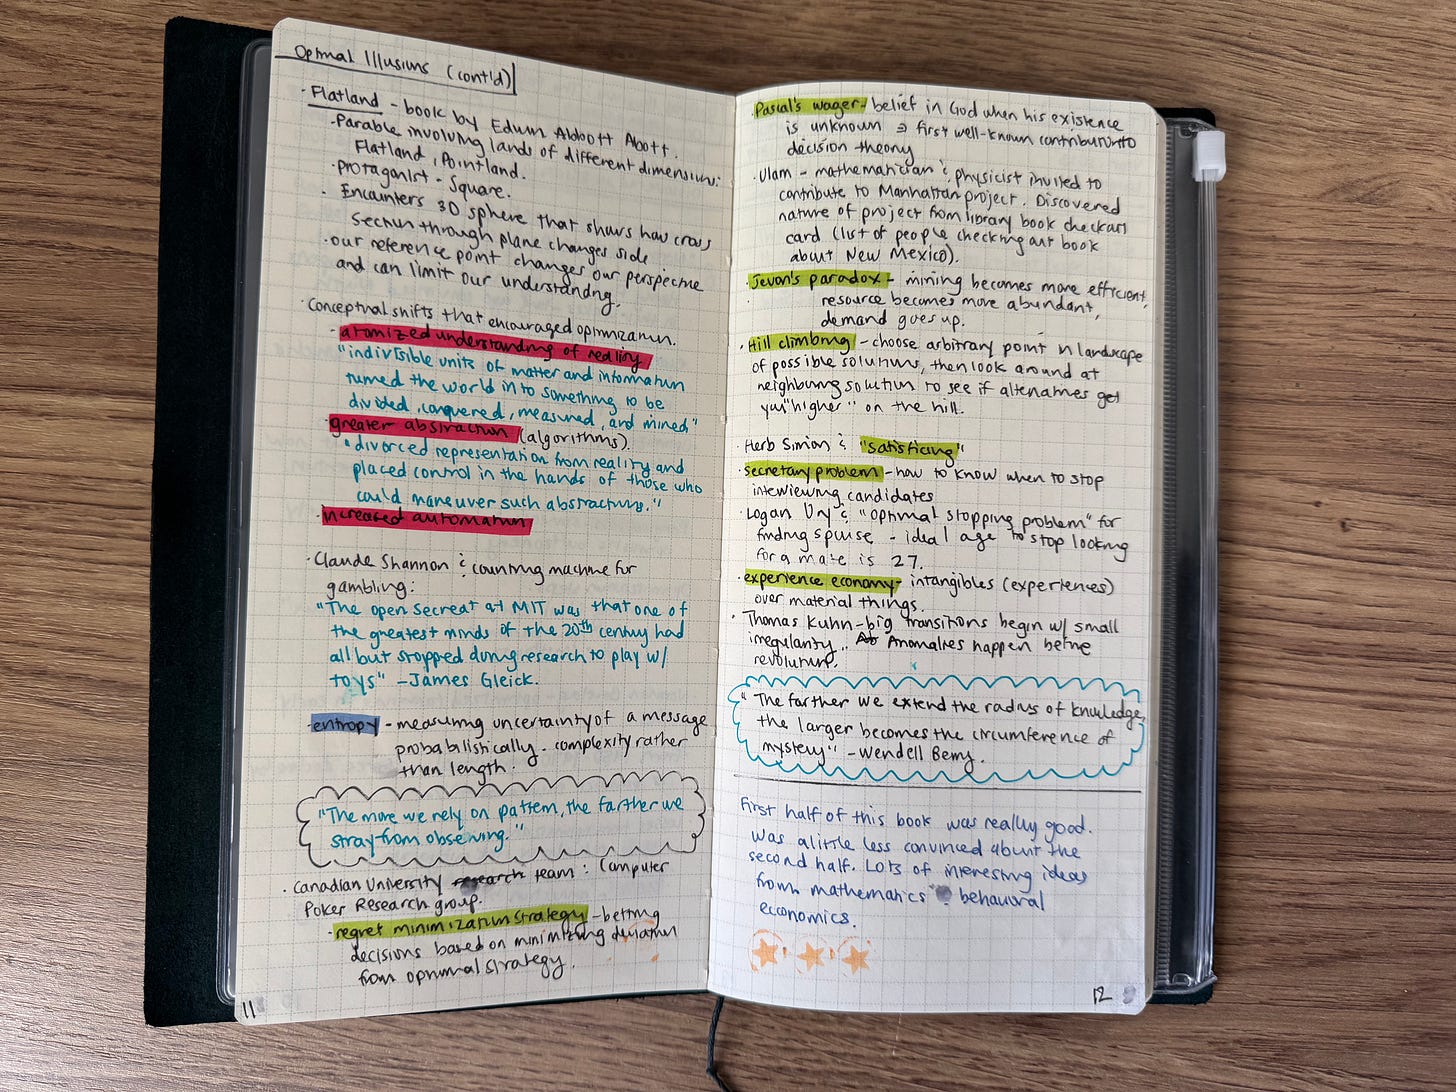 Optimal Illusions (cont'd)
· Flatland - book by Edwin Abbott Abott.
· Parable involving lands of different dimensions:
Flatland, Pointland.
· protagonist - Square.
· Encounters 3D sphere that shows how cross
section through plane changes side
· our reference point changes our perspective
and can limit our understanding.
· Conceptual shifts that encouraged optimization.
· atomized understanding of reality
"indivisible units of matter and information
turned the world in to something to be
divided, conquered, measured, and mined"
· greater abstraction (algorithms).
"divorced representation from reality and
placed control in the hands of those who
could maneuver such abstractions."
· increased automation
· Claude Shannon & counting machine for
gambling:
"The open secreat at MIT was that one of
the greatest minds of the 20th century had
all but stopped doing research to play w/
toys" - James Gleick.
· entropy - measuring uncertainty of a message
probabilistically. complexity rather
than length.
"The more we rely on pattern, the farther we
stray from observing."
· Canadian University research team: Computer
Poker Research group.
· regret minimization strategy - betting
decisions based on minimizing deviation
from optimal strategy.
11
· Pascal's wager - belief in God when his existence
is unknown → first well-known contribution to
decision theory
· Ulam - mathematician & physicist invited to
contribute to Manhattan project. Discovered
nature of project from library book checkout
card (list of people checking out book
about New Mexico).
· Jevon's paradox - mining becomes more efficient,
resource becomes more abundant,
demand goes up.
· Hill climbing - choose arbitrary point in landscape
of possible solutions, then look around at
neighboring solution to see if alternatives get
you "higher" on the hill.
· Herb Simon & "satisficing"
· secretary problem - how to know when to stop
interviewing candidates
· Logan Ury & "optimal stopping problem" for
finding spouse - ideal age to stop looking
for a mate is 27.
· experience economy - intangibles (experiences)
over material things.
· Thomas Kuhn - big transitions begin w/ small
irregularity.. Anomalies happen before
revolution.
"The farther we extend the radius of knowledge,
the larger becomes the circumference of
mystery" - Wendell Berry.
First half of this book was really good.
Was a little less convinced about the
second half. Lots of interesting ideas
from mathematics behavioral
economics.
12